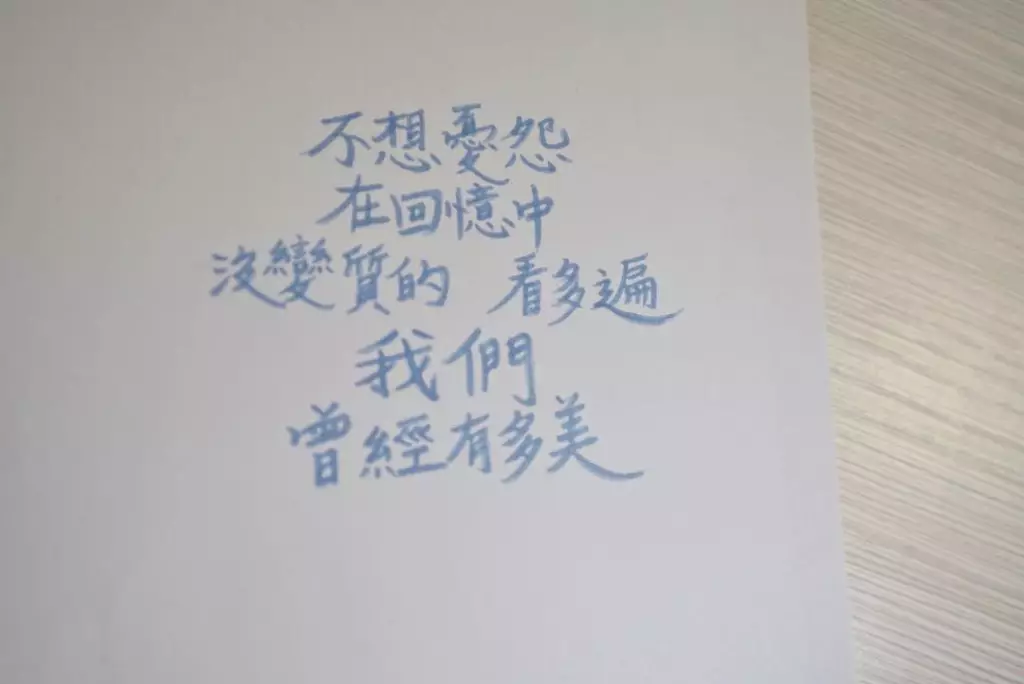 不想憂怨
在回憶中
沒變質的 看多遍
我們
曾經有多美